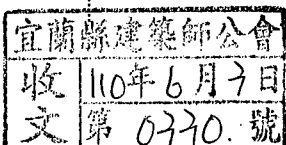 宜蘭縣建築師公會
收文
110年6月7日
第 0330. 號